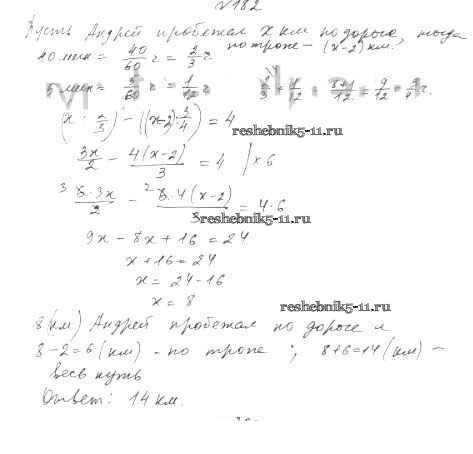 № 182
Пусть Андрей пробежал x км по дороге, тогда
по тропе – (x-2) км.
40 мин = 40/60 ч = 2/3 ч.
5 мин = 5/60 ч = 1/12 ч. 2/3 + 1/12 = 8+1/12 = 9/12 = 3/4 ч.
(x : 2/3) - ((x-2) : 3/4) = 4
reshebnik5-11.ru
3x/2 - 4(x-2)/3 = 4 | × 6
6·3x/2 - 6·4(x-2)/3 = 4·6
reshebnik5-11.ru
9x - 8x + 16 = 24
x + 16 = 24
x = 24 - 16
x = 8
reshebnik5-11.ru
8 (км) Андрей пробежал по дороге и
8 - 2 = 6 (км) - по тропе ; 8+6=14 (км) –
весь путь
Ответ: 14 км.